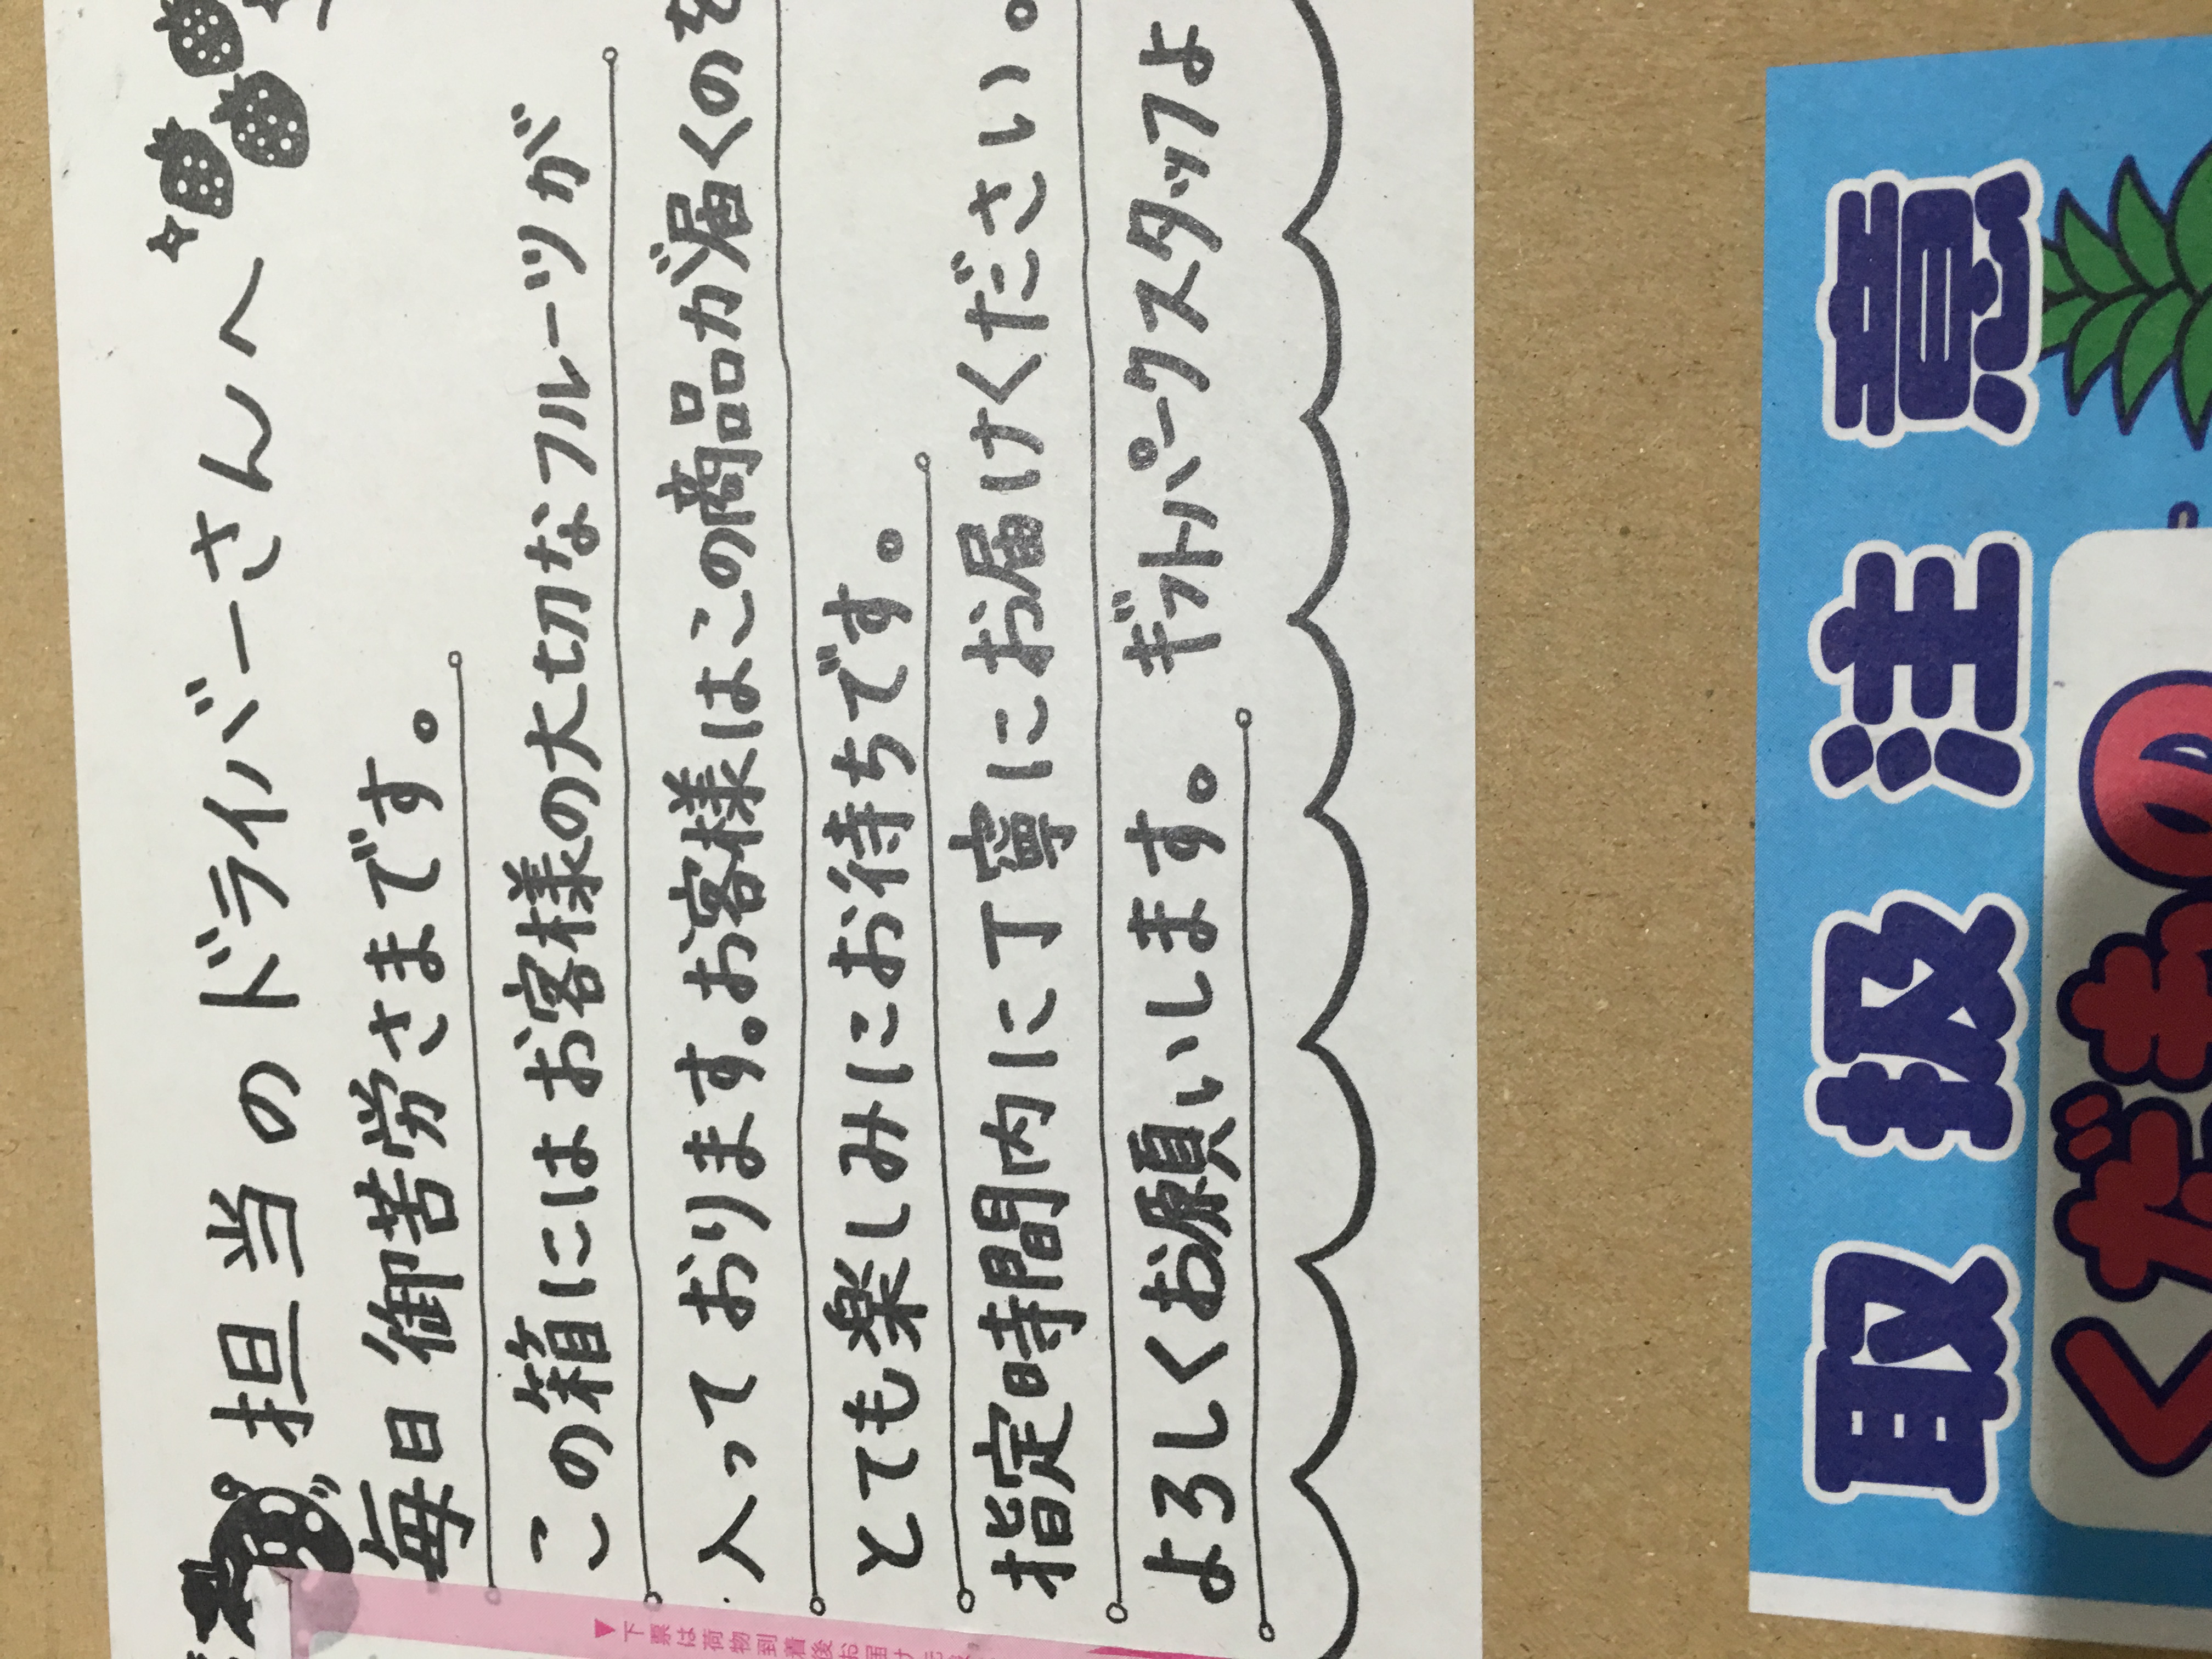 担当のドライバーさんへ
毎日御苦労さまです。
この箱にはお客様の大切なフルーツが
入っております。お客様はこの商品が届くのを
とても楽しみにお待ちです。
指定時間内に丁寧にお届けください。
よろしくお願いします。 ギフトパークスタッフよ
▼下票は荷物到着後お届け
取扱注意
くだもの